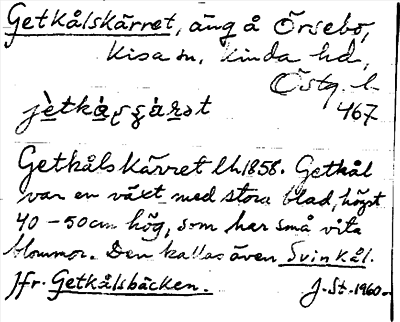 Getkålskärret, äng å Örsebo,
Kisa sn, Kinda hd,
Östg. l.
467
Getkålskärret lh.1858. Getkål
var en växt med stora blad, högst
40-50cm hög, som har små vita
blommor. Den kallas även Svinkål.
Jfr. Getkålsbäcken.
J. St. 1960.